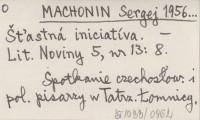 O MACHONIN Sergej 1956...
Šťastná iniciatíva. –
Lit. Noviny 5, nr 13: 8.
Spotkanie czechosłow. i
pol. pisarzy w Tatrz. Łomnicy.